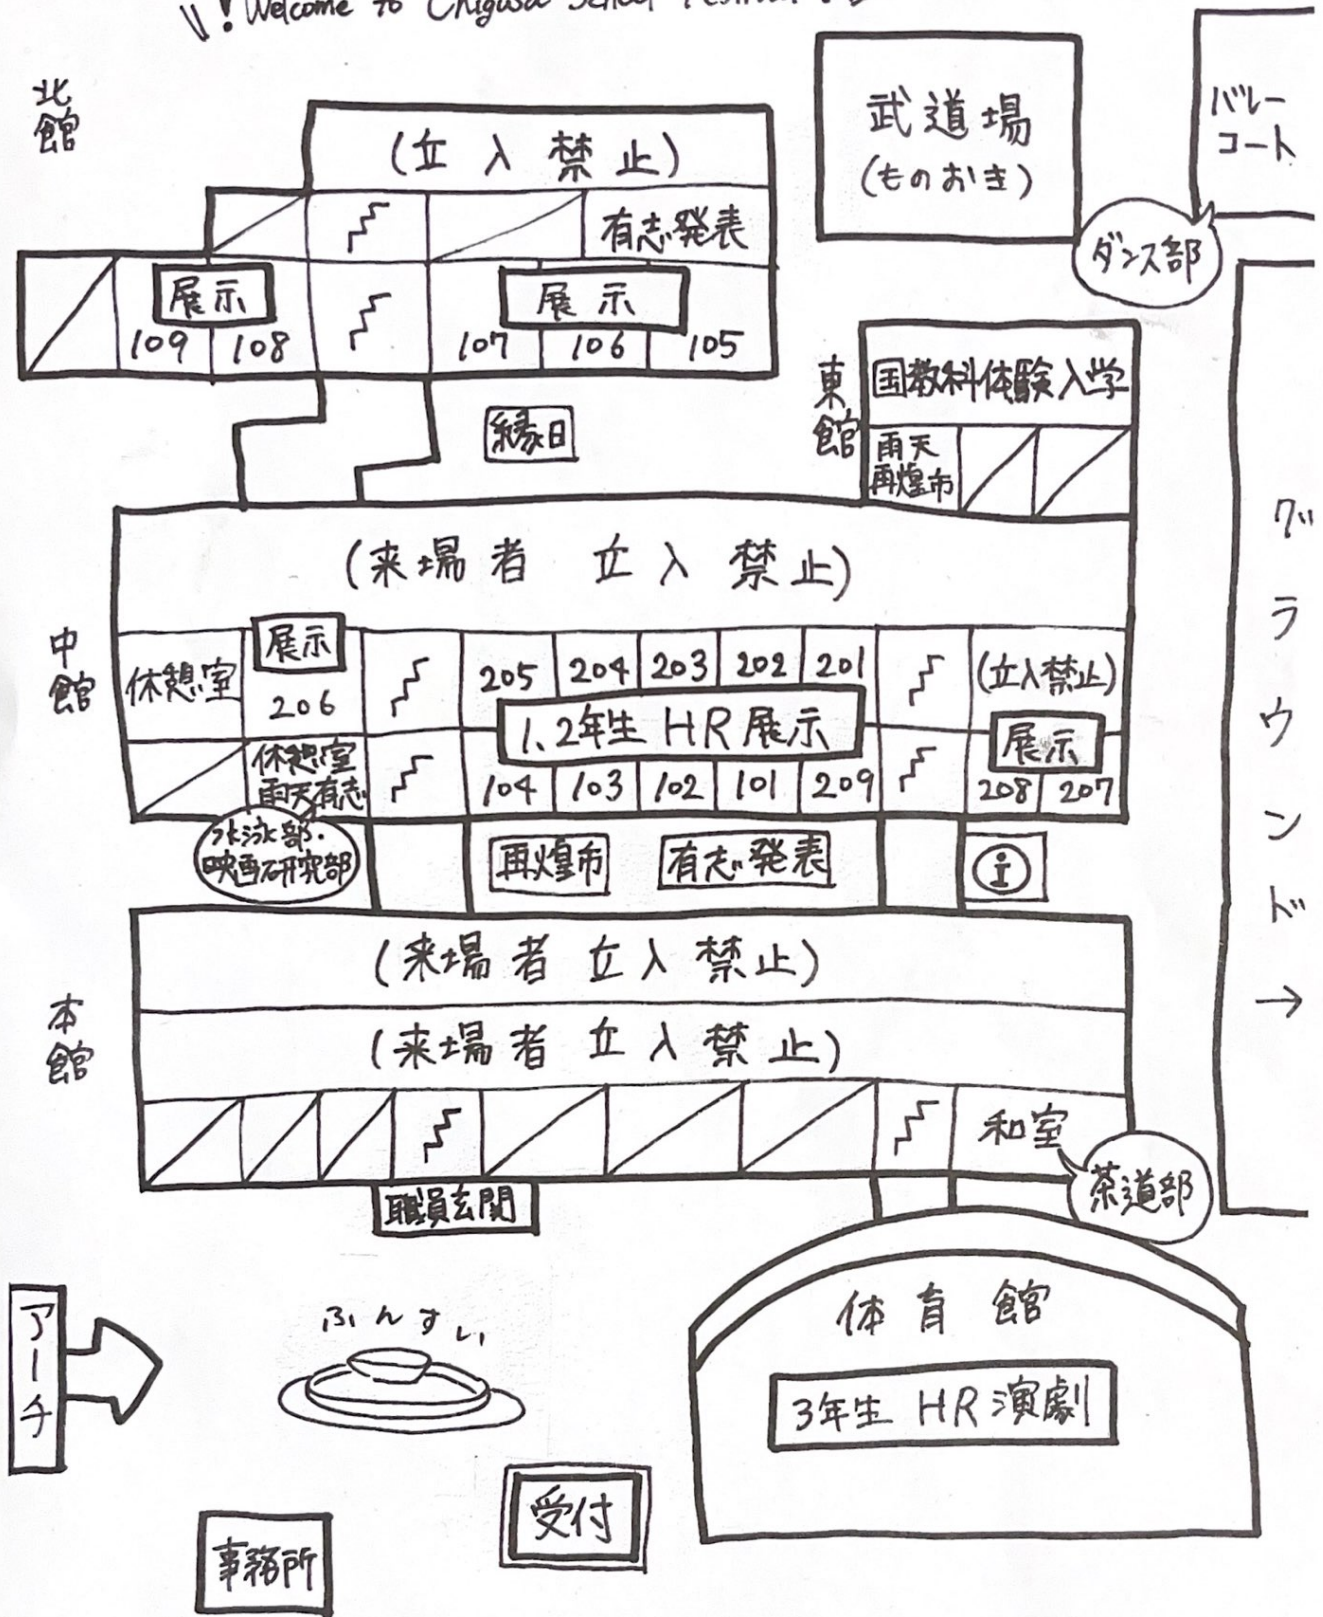 ! Welcome to Chigusa School Festival !
北館
(立入禁止)
有志発表
展示
展示
109
108
107
106
105
武道場
(ものおき)
バレー
コート
ダンス部
縁日
東館
国教科体験入学
雨天
再煌市
グラウンド→
(来場者 立入禁止)
中館
休憩室
展示
206
205
204
203
202
201
(立入禁止)
1、2年生 HR展示
展示
休憩室
雨天有志
104
103
102
101
209
208
207
水泳部・
映画研究部
再煌市
有志発表
i
(来場者 立入禁止)
本館
(来場者 立入禁止)
和室
茶道部
職員玄関
アーチ
ふんすい
体育館
3年生 HR演劇
受付
事務所